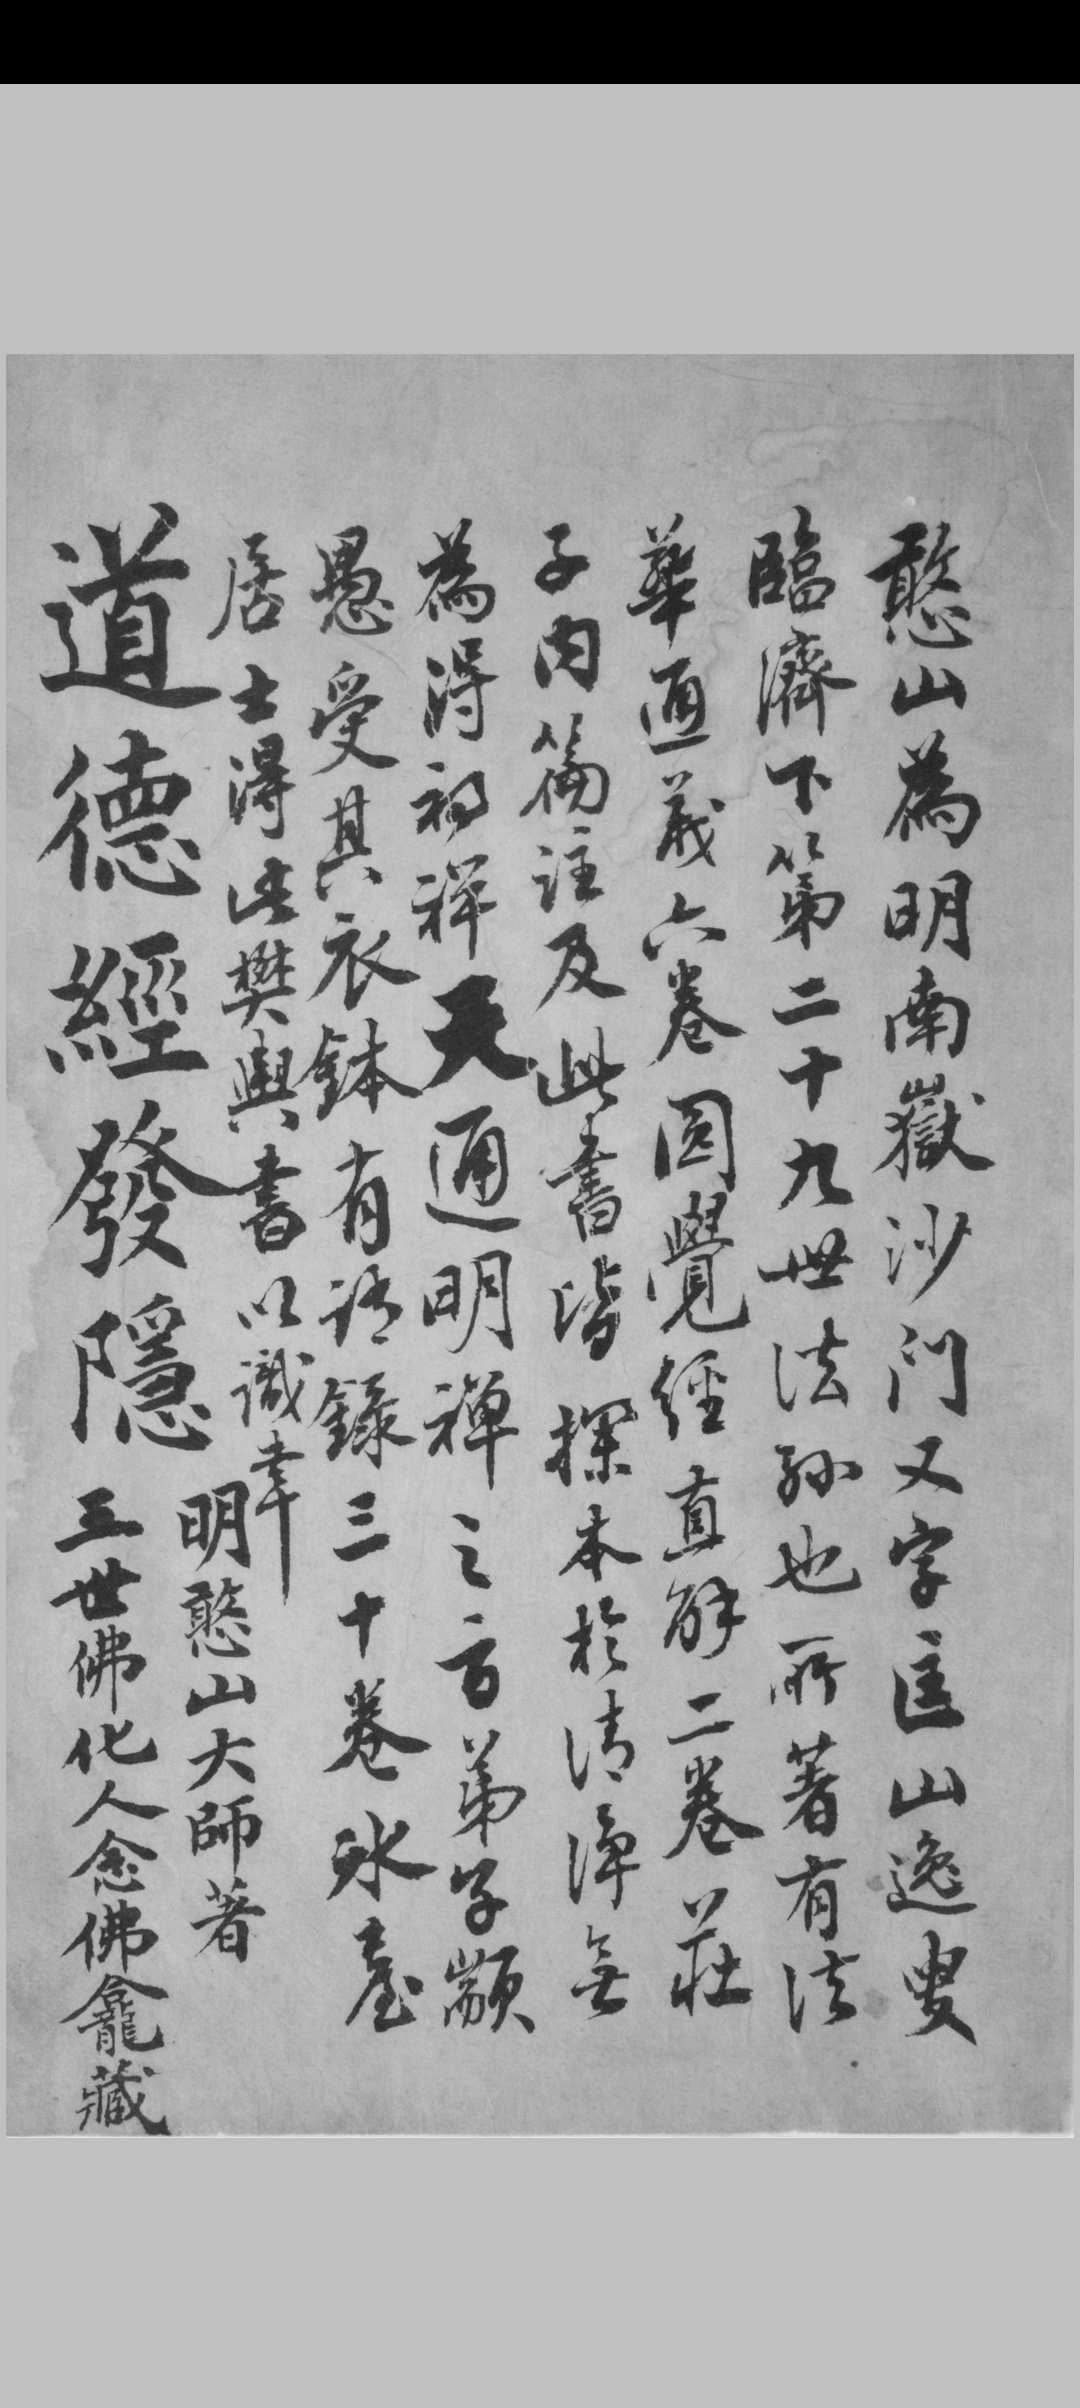 憨山為明南嶽沙门又字匡山逸叟
臨濟下第二十九世法孫也所著有法
華通義六卷圓覺經直解二卷莊
子內篇註及此書皆探本於清淨無
為得初禪天通明禪之言弟子顓
愚受其衣鉢有語錄三十卷冰臺
居士得此樊輿書以識幸
道德經發隱
明憨山大師著
三世佛化人念佛龕藏